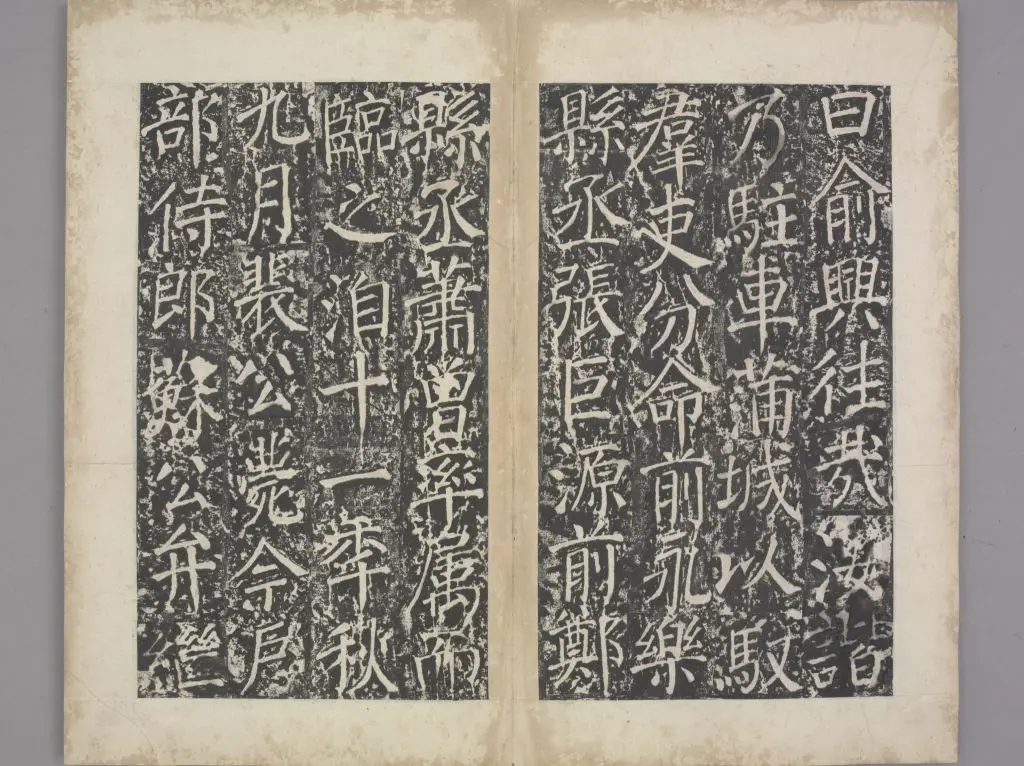 曰俞興往㢤汝諧
乃駐車蒲城以馭
羣吏分命前永樂
縣丞張巨源前鄭
縣丞蕭曾率属而
臨之洎十一年秋
九月裴公薨今戶
部侍郎蘇公弁繼